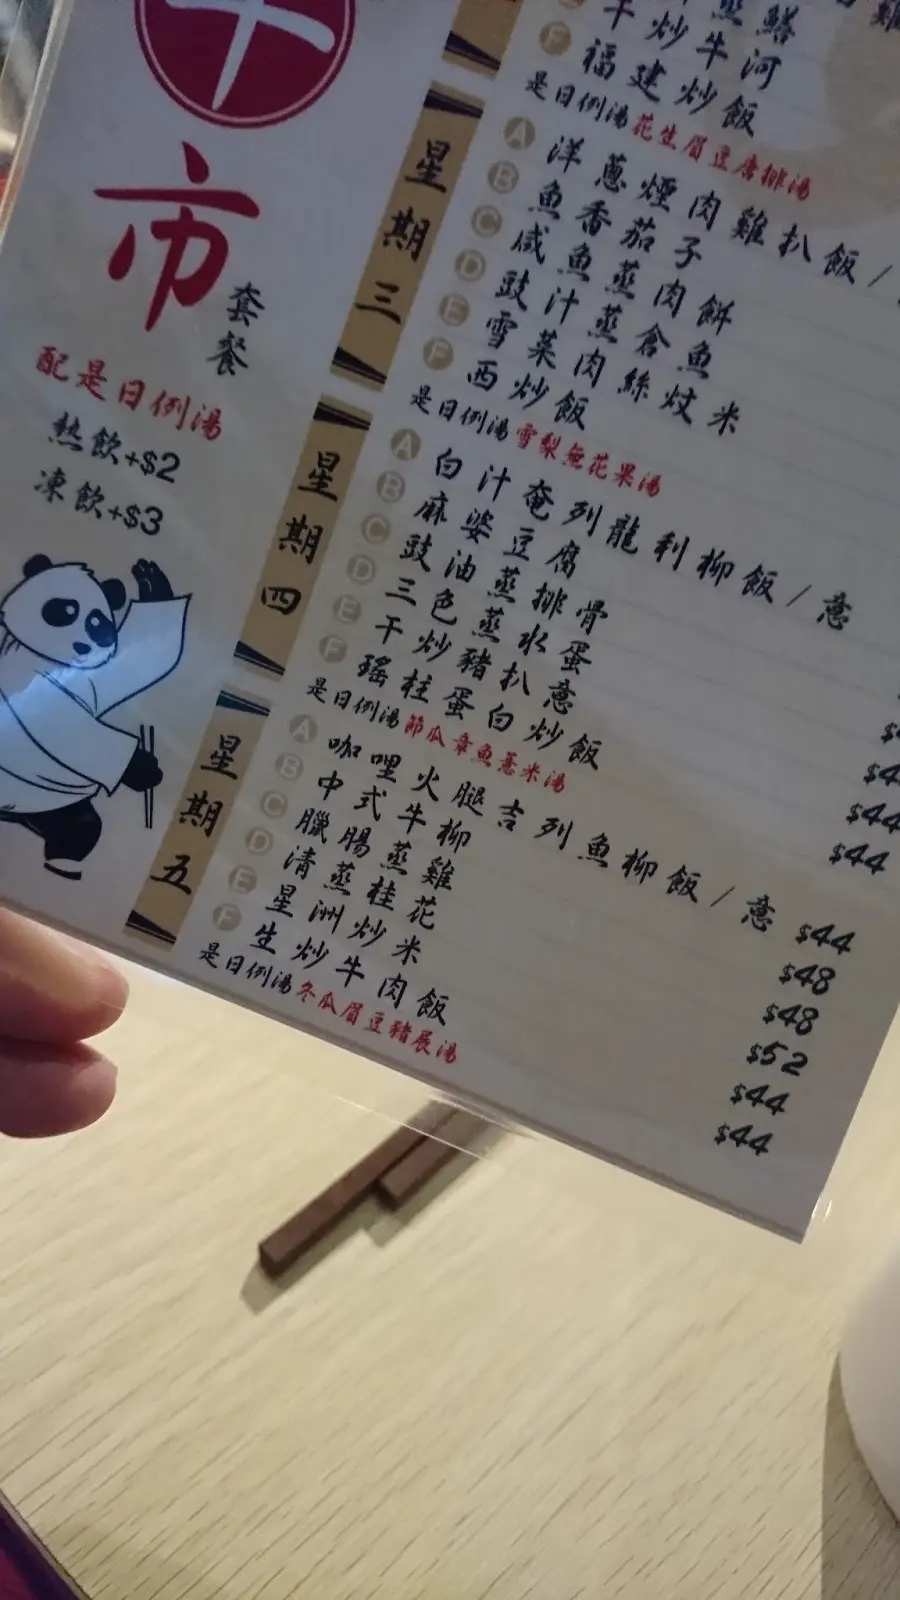 市
套餐
配是日例湯
熱飲+$2
凍飲+$3
干炒牛河
F 福建炒飯
是日例湯 花生眉豆唐排湯
星期三
A 洋蔥煙肉雞扒飯 /
B 魚香茄子
C 咸魚蒸肉餅
D 豉汁蒸倉魚
E 雪菜肉絲炆米
F 西炒飯
是日例湯 雪梨無花果湯
星期四
A 白汁奄列龍利柳飯 / 意
B 麻婆豆腐
C 豉油蒸排骨
D 三色蒸水蛋
E 干炒豬扒意 $44
F 瑤柱蛋白炒飯 $44
是日例湯 節瓜章魚薏米湯
星期五
A 咖哩火腿吉列魚柳飯 / 意 $44
B 中式牛柳 $48
C 臘腸蒸雞 $48
D 清蒸桂花 $52
E 星洲炒米 $44
F 生炒牛肉飯 $44
是日例湯 冬瓜眉豆豬展湯